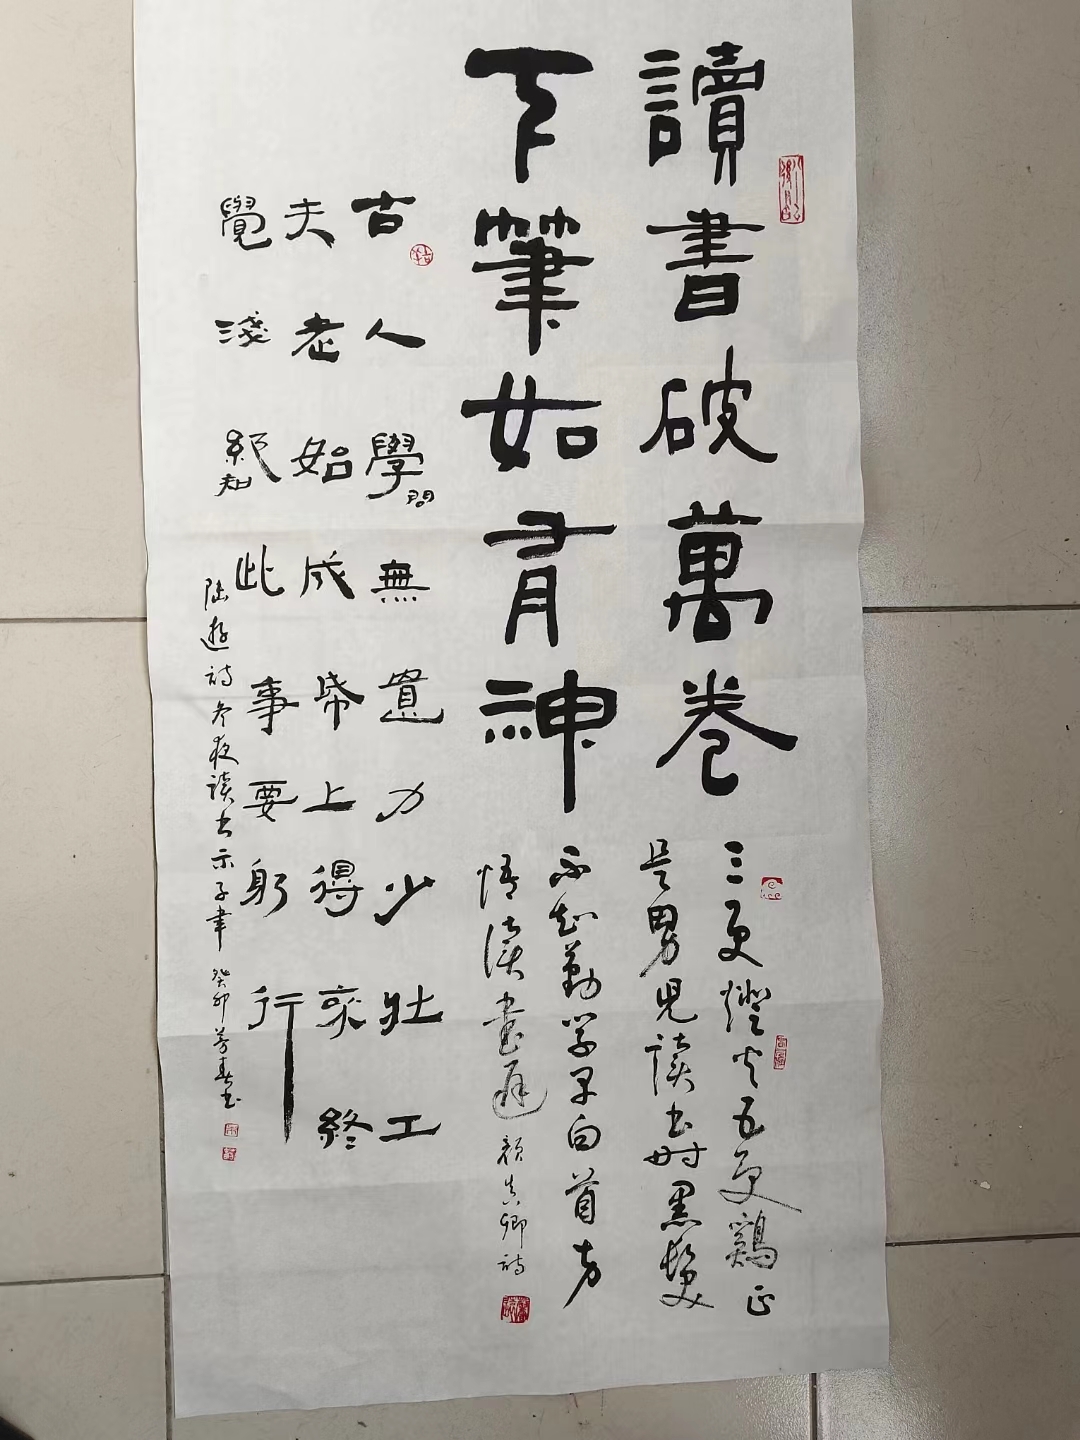 讀書破萬卷
下筆如有神
三更燈火五更鷄正
是男児读书时黑髮
不知勤学早白首方
悔讀書遅 颜真卿诗
古人學問無遺力少壮工
夫老始成帋上得來終
覺淺絕知此事要躬行
陆遊诗冬夜读书示子聿 癸卯芳春书